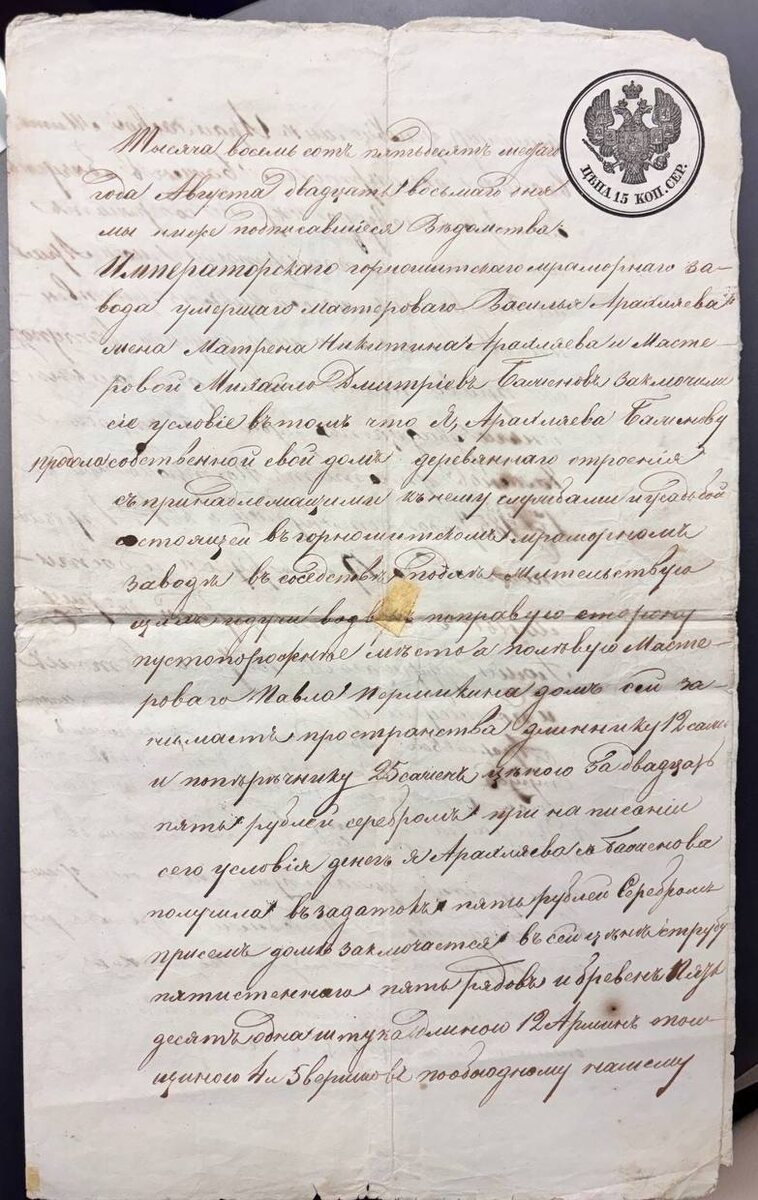 ЦѢНА 15 КОП. СЕР.
Тысяча восемь сотъ пятьдесятъ
года Августа двадцать восьмаго дня
мы ниже подписавшіеся Вѣдомства
Императорскаго горнощитскаго мраморнаго за-
вода умершаго мастероваго Василья Арахляева
жена Матрена Никитина Арахляева и Масте-
ровой Михайло Дмитріевъ заключили
сіе условіе въ томъ что я, Арахляева
продала собственной свой домъ деревяннаго строенія
съ принадлежащими къ нему службами и усадьбой
состоящей въ горнощитскомъ мраморномъ
заводѣ въ сосѣдствѣ жительствую
щихъ идучи поправую сторону
пустопорожнѣе мѣсто а полѣвую Масте-
роваго Павла Пермикина домъ сей за-
нимаетъ пространства длиннику 12 саж:
и попѣрѣчнику 25 сажень цѣною за двадцать
пять рублей серебромъ при написаніи
сего условія денегъ я Арахляева съ
получила въ задатокъ пять рублей Серебромъ
присемъ домѣ заключается въ сей цѣнѣ струбу
пятистеннаго пять рядовъ и бревенъ пять
десятъ одна штука длиною 12 Аршинъ тол-
щиною 4 и 5 вершковъ пообоюдному нашему